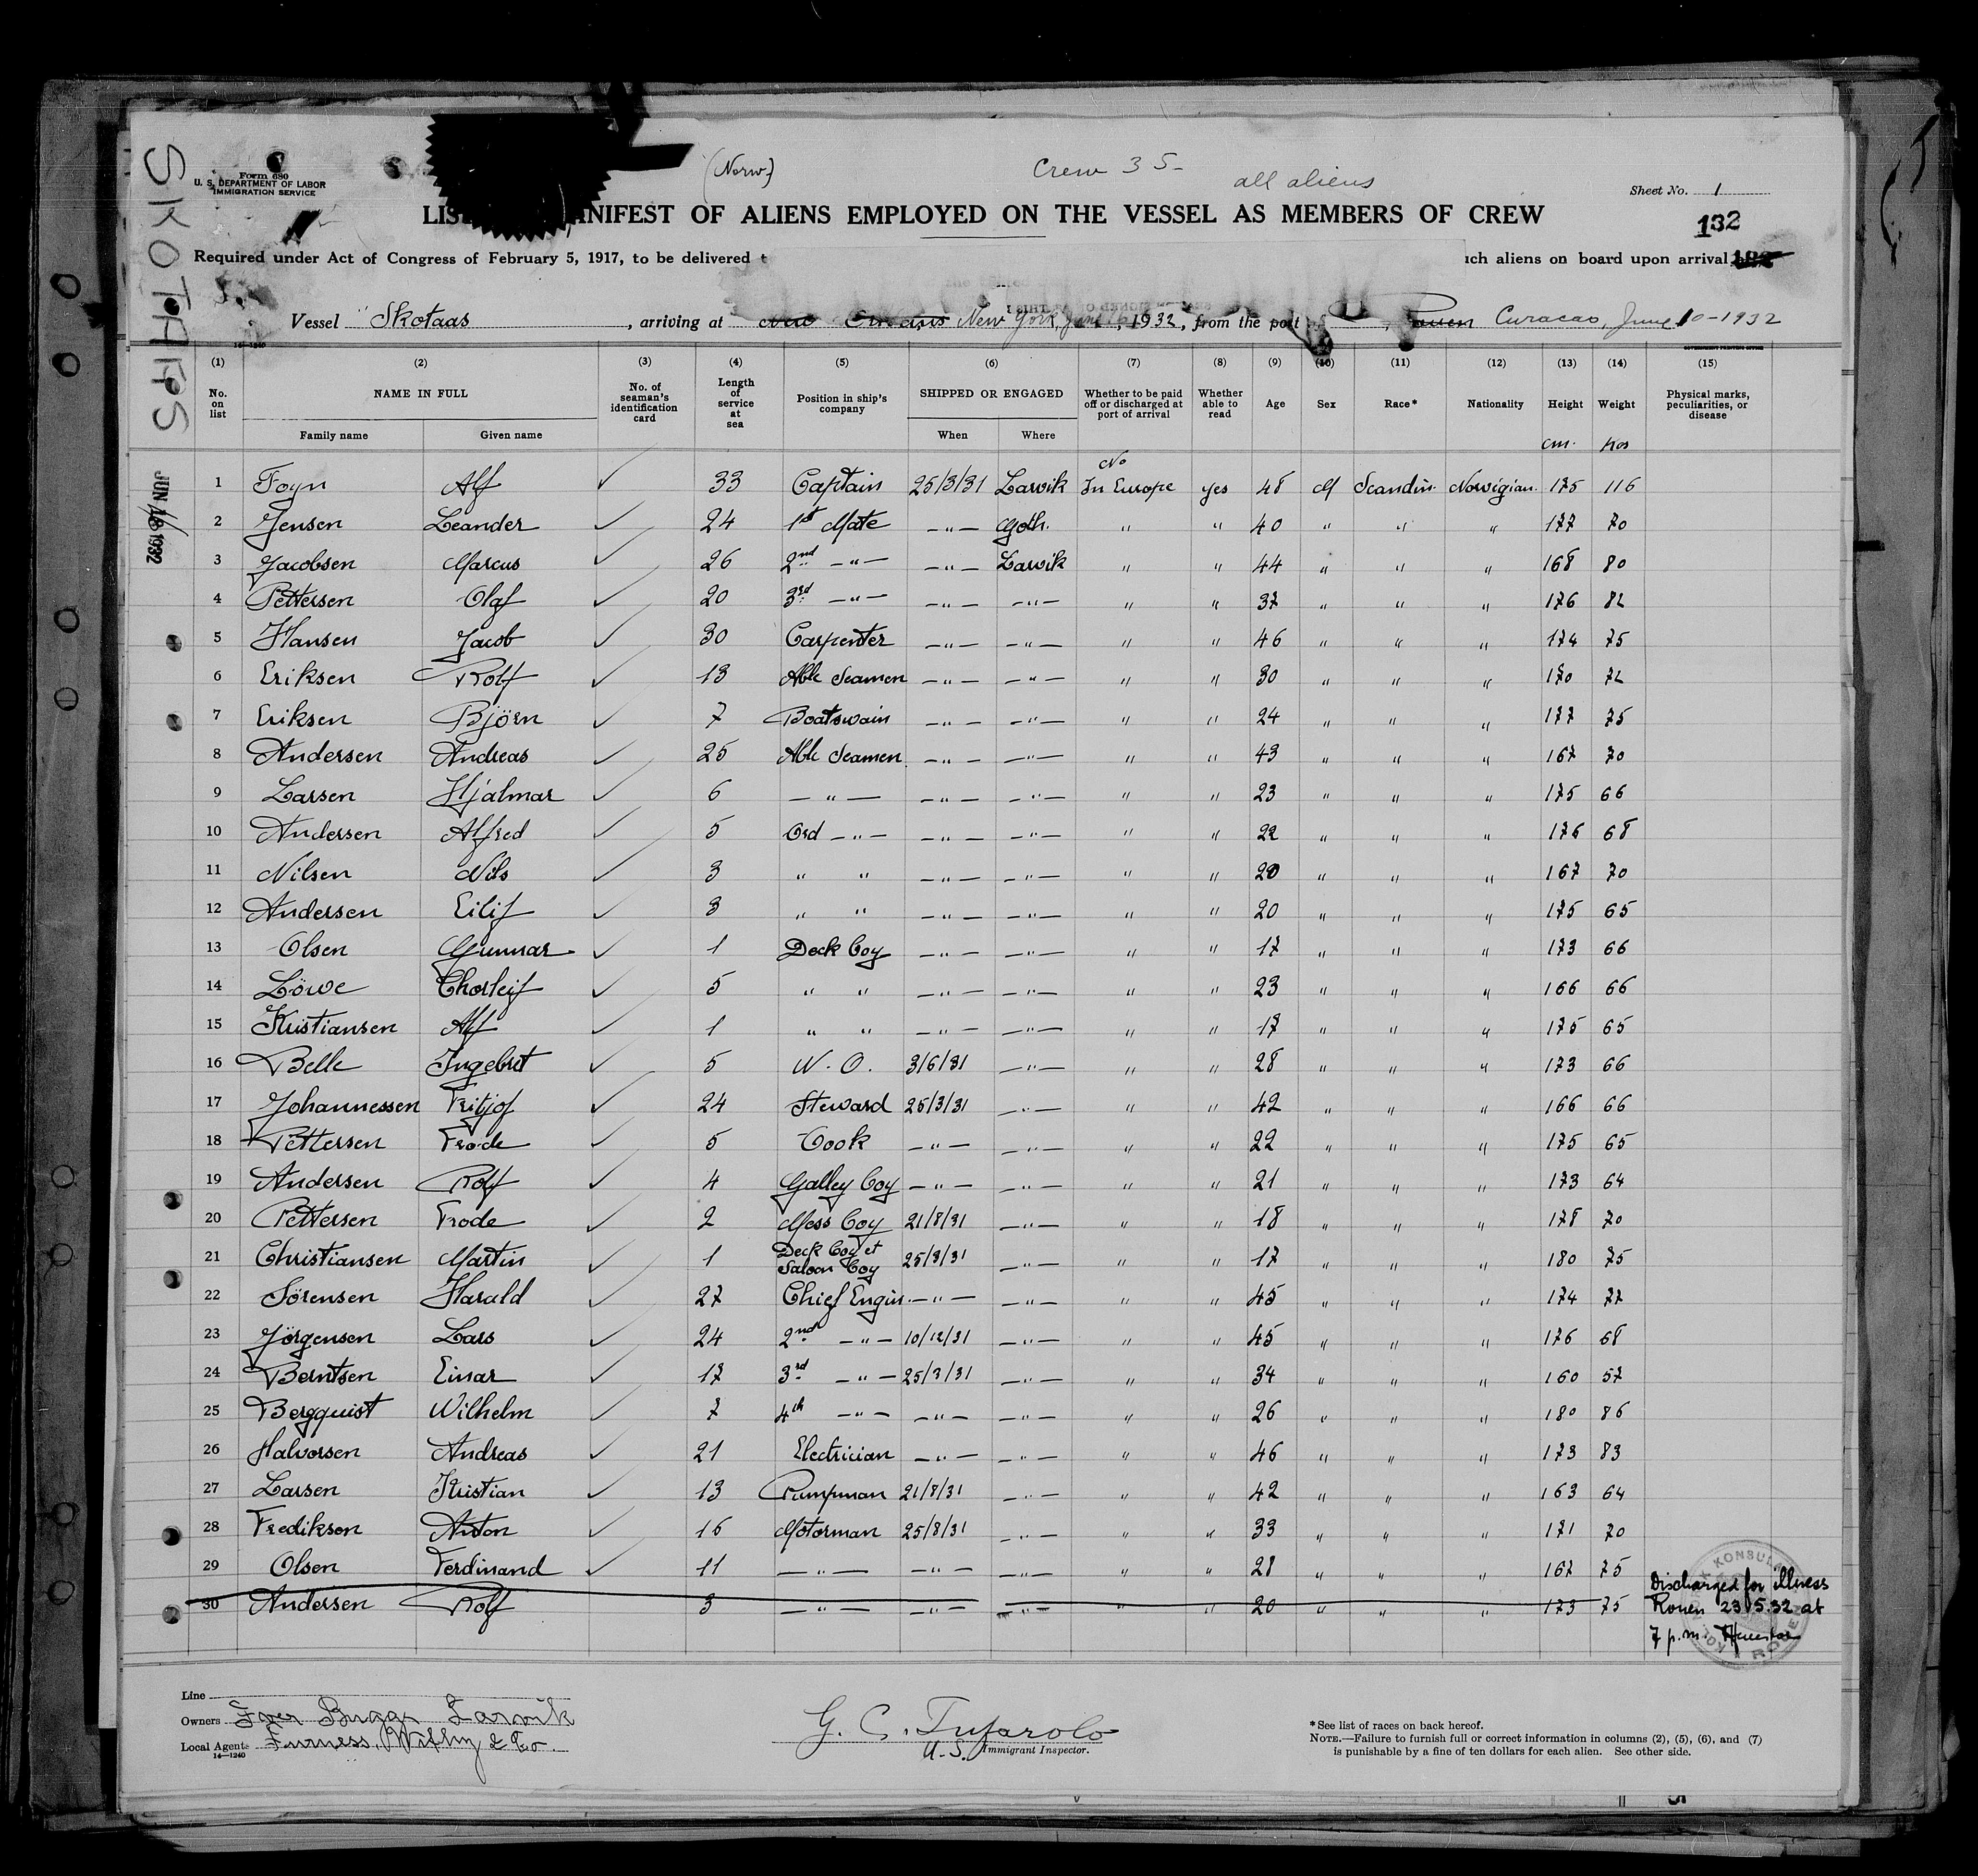 SKOTAAS
JUN 18 1932
Form 680
U. S. DEPARTMENT OF LABOR
IMMIGRATION SERVICE
(Norw.)
Crew 35-
all aliens
Sheet No. 1
LIS NIFEST OF ALIENS EMPLOYED ON THE VESSEL AS MEMBERS OF CREW
132
Required under Act of Congress of February 5, 1917, to be delivered t uch aliens on board upon arrival
Vessel Skotaas, arriving at New Orleans New York, June 16, 1932, from the port of Rouen Curacao, June 10-1932
14-1240
(1) (2) (3) (4) (5) (6) (7) (8) (9) (10) (11) (12) (13) (14) (15)
No. on list NAME IN FULL No. of seaman's identification card Length of service at sea Position in ship's company SHIPPED OR ENGAGED Whether to be paid off or discharged at port of arrival Whether able to read Age Sex Race* Nationality Height Weight Physical marks, peculiarities, or disease
Family name Given name When Where cm. kos
No
1 Foyn Alf ✓ 33 Captain 25/3/31 Larvik In Europe yes 48 M Scandin. Norvigian. 175 116
2 Jensen Leander ✓ 24 1st Mate -"- Goth. " " 40 " " " 177 70
3 Jacobsen Marcus ✓ 26 2nd -"- -"- Larvik " " 44 " " " 168 80
4 Pettersen Olaf ✓ 20 3rd -"- -"- -"- " " 37 " " " 176 82
5 Hansen Jacob ✓ 30 Carpenter -"- -"- " " 46 " " " 174 75
6 Eriksen Rolf ✓ 13 Able Seamen -"- -"- " " 30 " " " 170 72
7 Eriksen Björn ✓ 7 Boatswain -"- -"- " " 24 " " " 177 75
8 Andersen Andreas ✓ 25 Able Seamen -"- -"- " " 43 " " " 167 70
9 Larsen Hjalmar ✓ 6 -"- -"- -"- " " 23 " " " 175 66
10 Andersen Alfred ✓ 5 Ord -"- -"- -"- " " 22 " " " 176 68
11 Nilsen Nils ✓ 3 " " -"- -"- " " 20 " " " 167 70
12 Andersen Eilif ✓ 3 " " -"- -"- " " 20 " " " 175 65
13 Olsen Gunnar ✓ 1 Deck boy -"- -"- " " 17 " " " 173 66
14 Löwe Thorleif ✓ 5 " " -"- -"- " " 23 " " " 166 66
15 Kristiansen Alf ✓ 1 " " -"- -"- " " 17 " " " 175 65
16 Belle Ingebret ✓ 5 W. O. 3/6/31 -"- " " 28 " " " 173 66
17 Johannessen Fritjof ✓ 24 Steward 25/3/31 -"- " " 42 " " " 166 66
18 Pettersen Frode ✓ 5 Cook -"- -"- " " 22 " " " 175 65
19 Andersen Rolf ✓ 4 Galley boy -"- -"- " " 21 " " " 173 64
20 Pettersen Frode ✓ 2 Mess boy 21/8/31 -"- " " 18 " " " 178 70
21 Christiansen Martin ✓ 1 Deck boy et Saloon boy 25/3/31 -"- " " 17 " " " 180 75
22 Sörensen Harald ✓ 27 Chief Engin. -"- -"- " " 45 " " " 174 77
23 Jörgensen Lars ✓ 24 2nd -"- 10/12/31 -"- " " 45 " " " 176 68
24 Berntsen Einar ✓ 17 3rd -"- 25/3/31 -"- " " 34 " " " 160 57
25 Bergquist Wilhelm ✓ 7 4th -"- -"- -"- " " 26 " " " 180 86
26 Halvorsen Andreas ✓ 21 Electrician -"- -"- " " 46 " " " 173 83
27 Larsen Kristian ✓ 13 Pumpman 21/8/31 -"- " " 42 " " " 163 64
28 Frediksen Anton ✓ 16 Motorman 25/8/31 -"- " " 33 " " " 171 70
29 Olsen Ferdinand ✓ 11 -"- -"- -"- " " 28 " " " 167 75
30 Andersen Rolf 3 -"- -"- -"- " " 20 " " " 173 75
Discharged for illness
Rouen 23/5.32 at
7 p.m.
KONSULA
ROUEN
Line
Owners Iver Bugge Larvik
Local Agents Furness, Withy & Co.
14-1240
G. C. Tufarolo
U.S. Immigrant Inspector.
*See list of races on back hereof.
NOTE.—Failure to furnish full or correct information in columns (2), (5), (6), and (7)
is punishable by a fine of ten dollars for each alien. See other side.